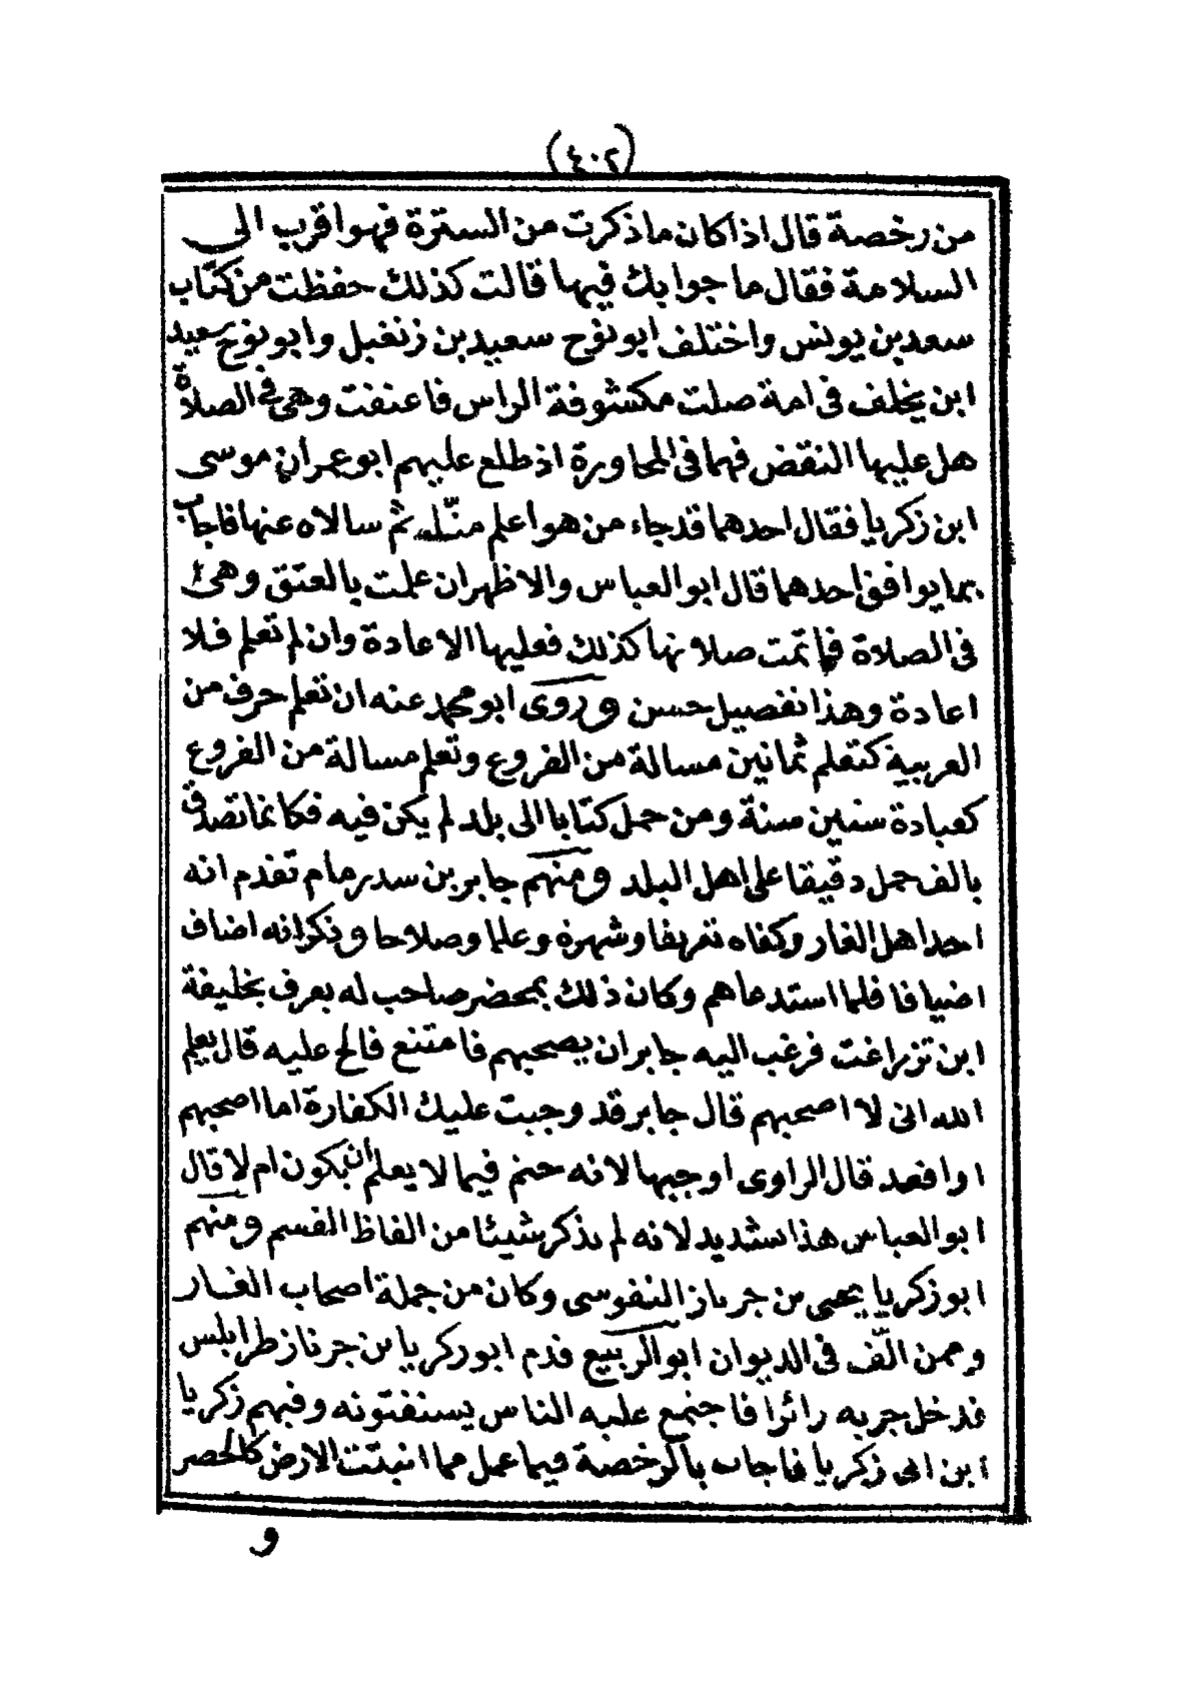 (٤٠٢)
من رخصة قال اذا كان ما ذكرت من السترة فهو اقرب الى
السلامة فقال ما جوابك فيها قالت كذلك حفظت من كتاب
سعد بن يونس واختلف ابو نوح سعيد بن زنغيل وابو نوح سعيد
ابن يخلف فى امة صلت مكشوفة الراس فاعتقت وهى فى الصلاة
هل عليها النقض فهما فى المحاورة اذ طلع عليهم ابو عمران موسى
ابن زكريا فقال احدهما قد جاء من هو اعلم منّا ثم سالاه عنها فاجاب
بما يوافق احدهما قال ابو العباس والاظهر ان علمت بالعتق وهى
فى الصلاة فما تمت صلاتها كذلك فعليها الاعادة وان لم تعلم فلا
اعادة وهذا تفصيل حسن وروى ابو محمد عنه ان تعلم حرف من
العربية كتعلم ثمانين مسالة من الفروع وتعلم مسالة من الفروع
كعبادة ستين سنة ومن حمل كتابا الى بلد لم يكن فيه فكانما تصدق
بالف حمل دقيقا على اهل البلد ومنهم جابر بن سدرمام تقدم انه
احد اهل الغار وكفاه تعريفا وشهرة وعلما وصلاحا وذكر انه اضاف
اضيافا فلما استدعاهم وكان ذلك بمحضر صاحب له يعرف بخليفة
ابن تزراغت فرغب اليه جابر ان يصحبهم فامتنع فالح عليه قال يعلم
الله انى لا اصحبهم قال جابر قد وجبت عليك الكفارة اما اصحبهم
او اقعد قال الراوى اوجبها لانه حتم فيما لا يعلم ان يكون ام لا قال
ابو العباس هذا شديد لانه لم يذكر شيئا من الفاظ القسم ومنهم
ابو زكريا يحيى بن جرناز النفوسى وكان من جملة اصحاب الغار
وممن الّف فى الديوان ابو الربيع قدم ابو زكريا بن جرناز طرابلس
فدخل جربه زائرا فاجتمع عليه الناس يستفتونه وفيهم زكريا
ابن ابى زكريا فاجاب بالرخصة فيما عمل مما انبتت الارض كالحصر
و